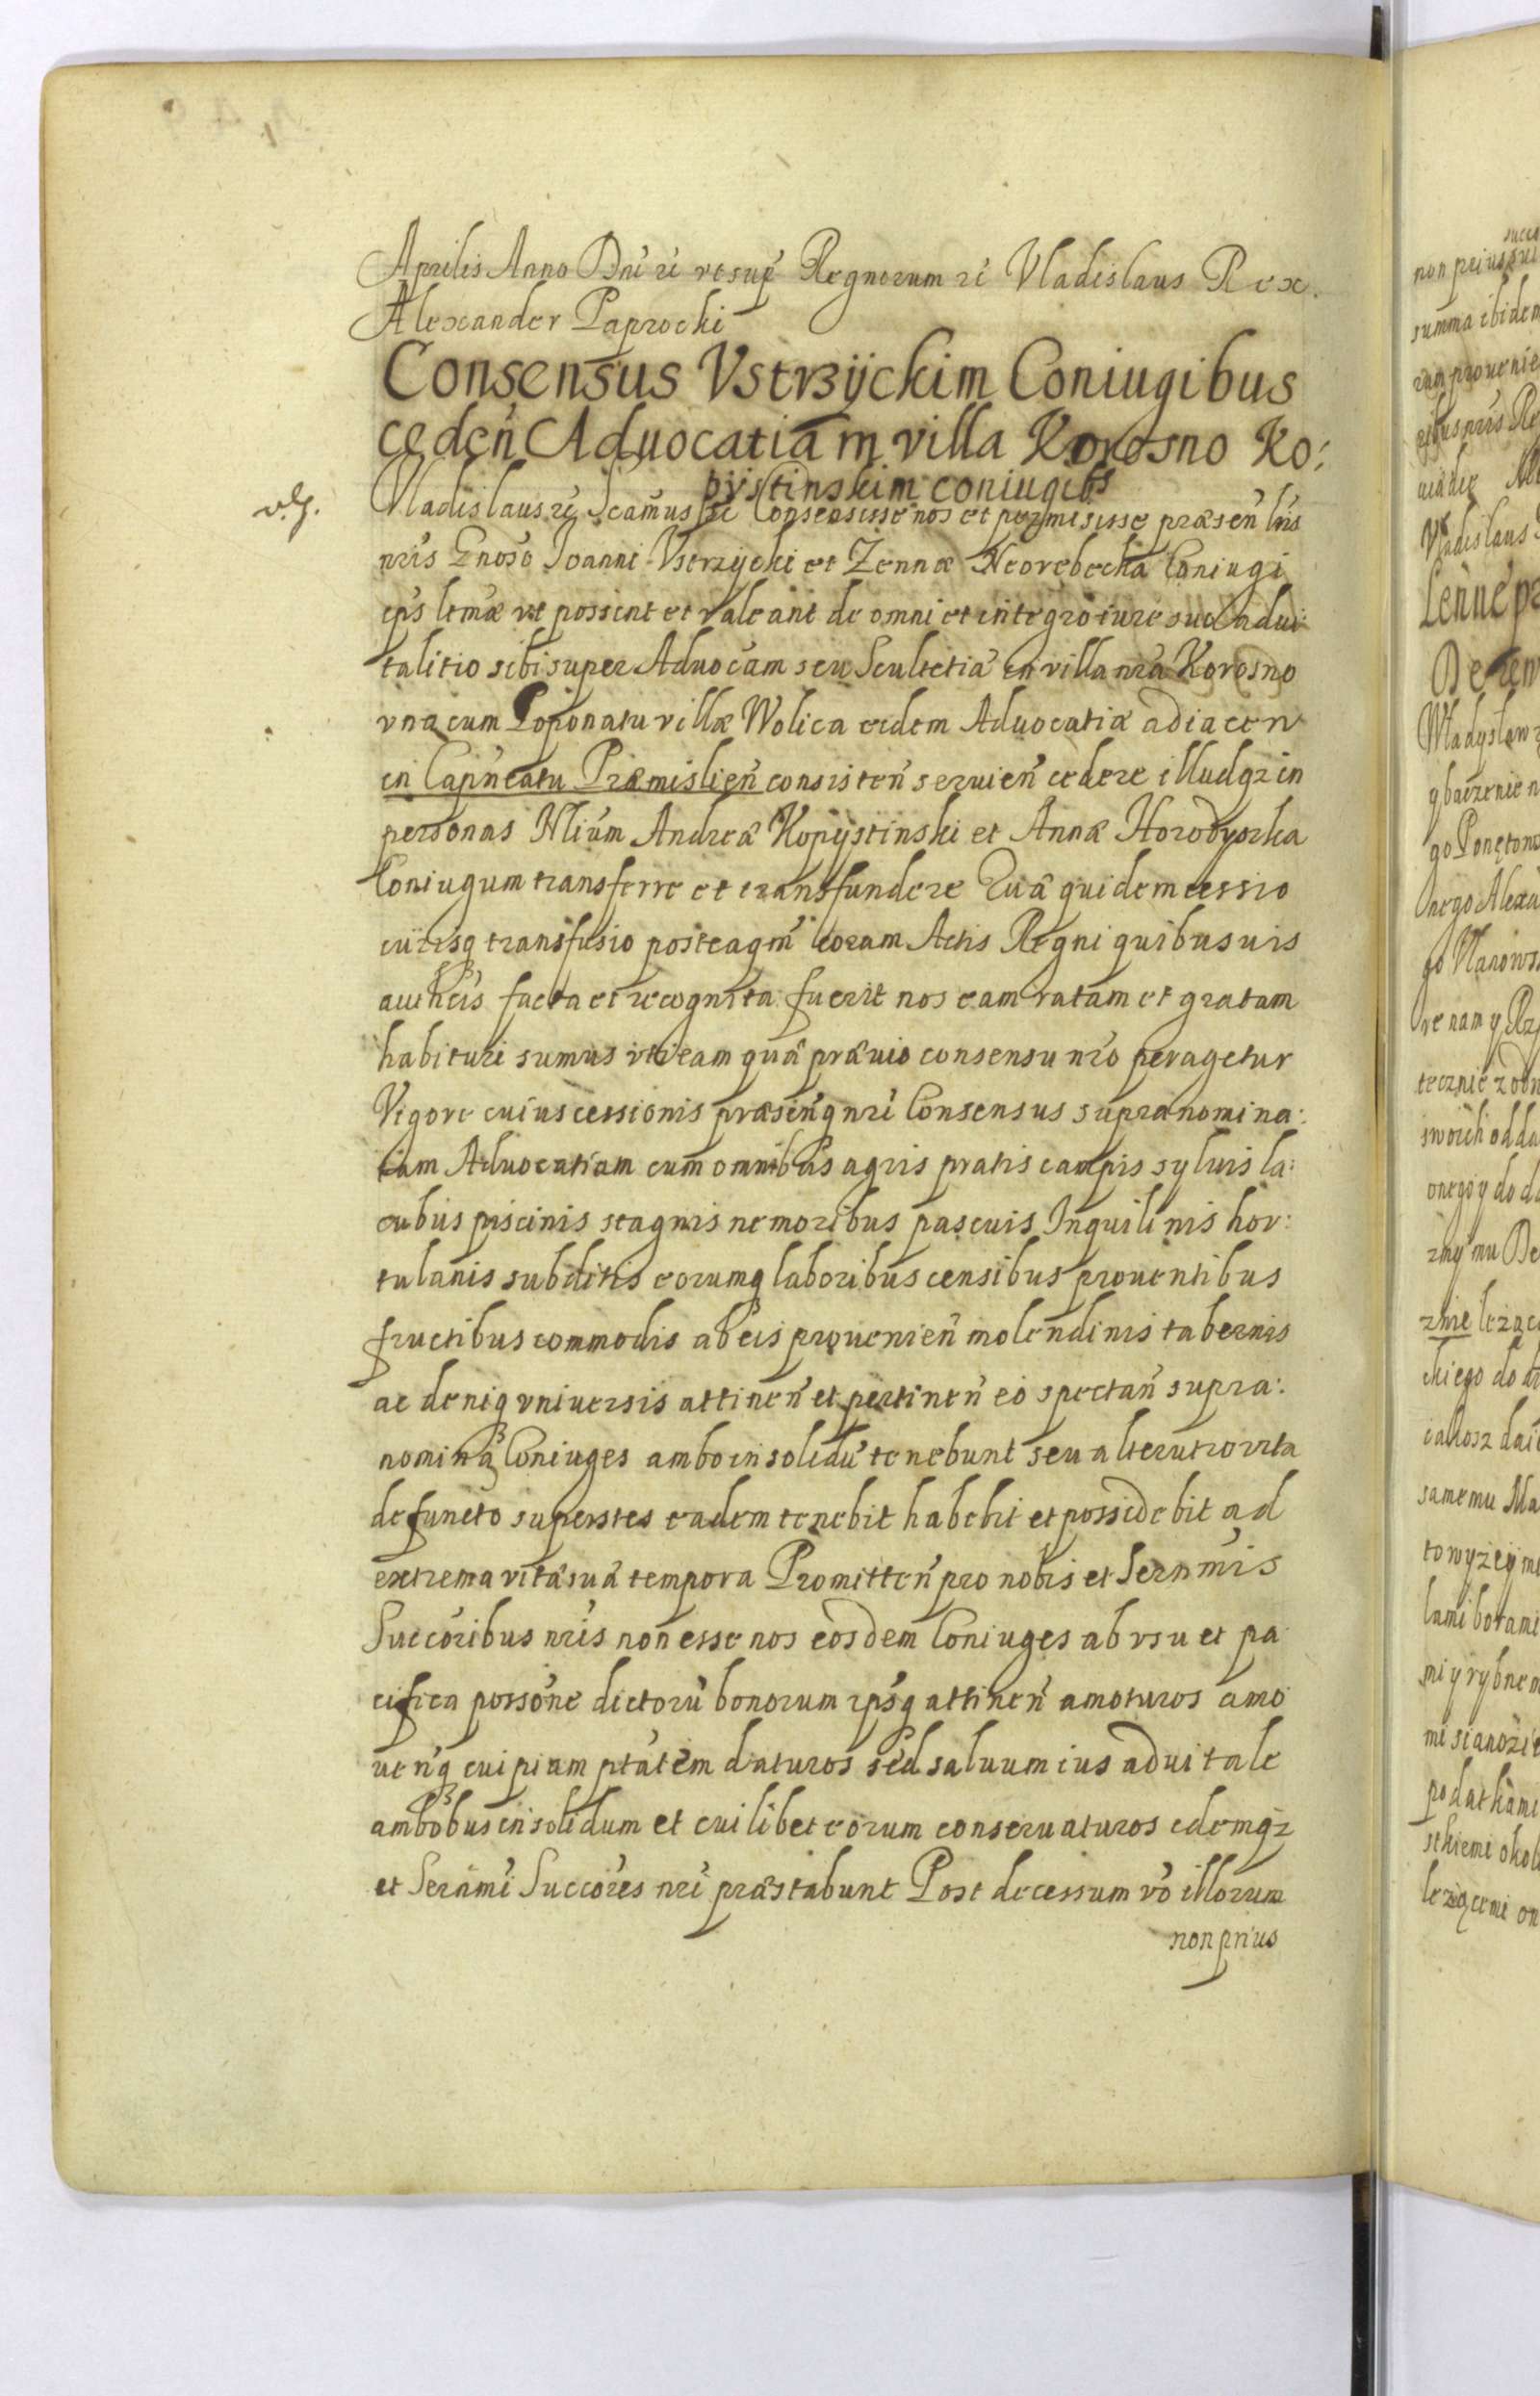 Aprilis Anno Dni ri ut sup Regnorum ri Vladislaus Rex.
Alexander Paprocki
Consensus Vstrzÿckim Coniugibus
ceden Aduocatiã in villa Korosno Ko:
pystinskim coniugibs
v.g.
Vladislaus ri Scamus ri Consensisse nos et permisisse præsen lris
nris Gnoso Joanni Vstrzycki et Zennæ Coniugi
eps ltmæ ut possint et valeant de omni et integro iure suo adui:
talitio sibi super Aduocam seu Scultetiã in villa nra Korosno
vna cum Poponatu villæ Wolica eidem Aduocatiæ adiacen
in Capneatu Præmislien consisten seruien cedere illudqz in
personas Nlium Andreæ Kopÿstinski et Annæ
Coniugum transferre et transfundere Quæ quidem cessio
transfusio posteaqm coram Actis Regni quibusuis
autheis facta et recognita fuerit nos eam ratam et gratam
habituri sumus uti eam quæ præuio consensu nro peragetur
Vigore cuius cessionis præsenq nri Consensus supranomina:
tam Aduocatiam cum omnibus agris pratis campis syluis la:
cubus piscinis stagnis nemoribus pascuis Inquilinis hor:
tulanis subditis eorumq laboribus censibus prouentibus
fructibus commodis ab eis prouenien molendinis tabernis
ac deniq vniuersis attinen et pertinen eò spectan supra:
nominã Coniuges ambo in solidũ tenebunt seu alterutro vita
defuncto superstes eadem tenebit habebit et possidebit ad
extrema vitæ suæ tempora Promitten pro nobis et Sernmis
Succoribus nris non esse nos eosdem Coniuges ab vsu et pa
cifica possone dictorũ bonorum attinen amoturos amo
uenq cuipiam ptatem daturos sed saluum ius aduitale
ambobus in solidum et cuilibet eorum conseruaturos idemqz
et Serñmi Succores nri præstabunt Post decessum vo illorum
non prius